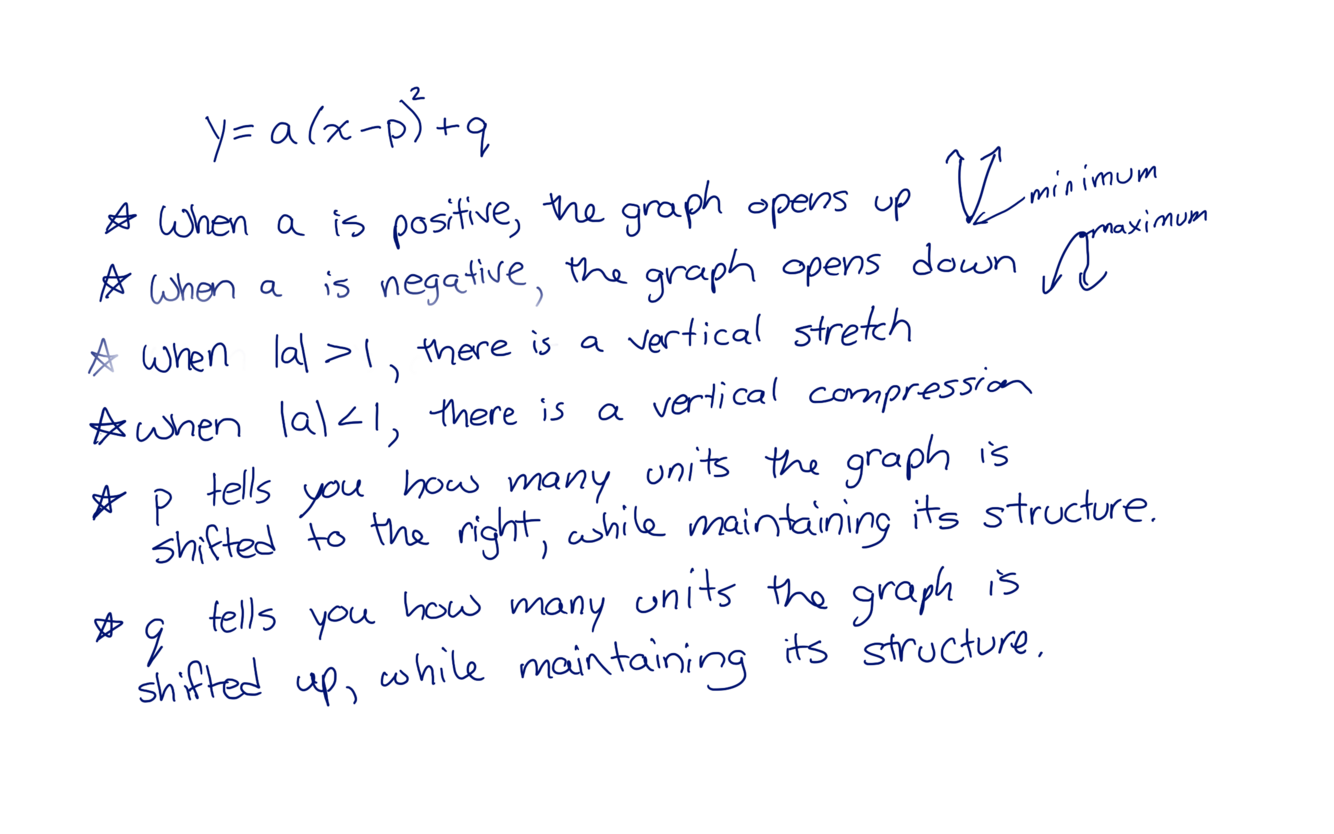 y = a(x-p)²+q
☆ When a is positive, the graph opens up minimum
maximum
☆ When a is negative, the graph opens down
☆ When |a| > 1, there is a vertical stretch
☆ when |a| < 1, there is a vertical compression
☆ p tells you how many units the graph is
shifted to the right, while maintaining its structure.
☆ q tells you how many units the graph is
shifted up, while maintaining its structure.